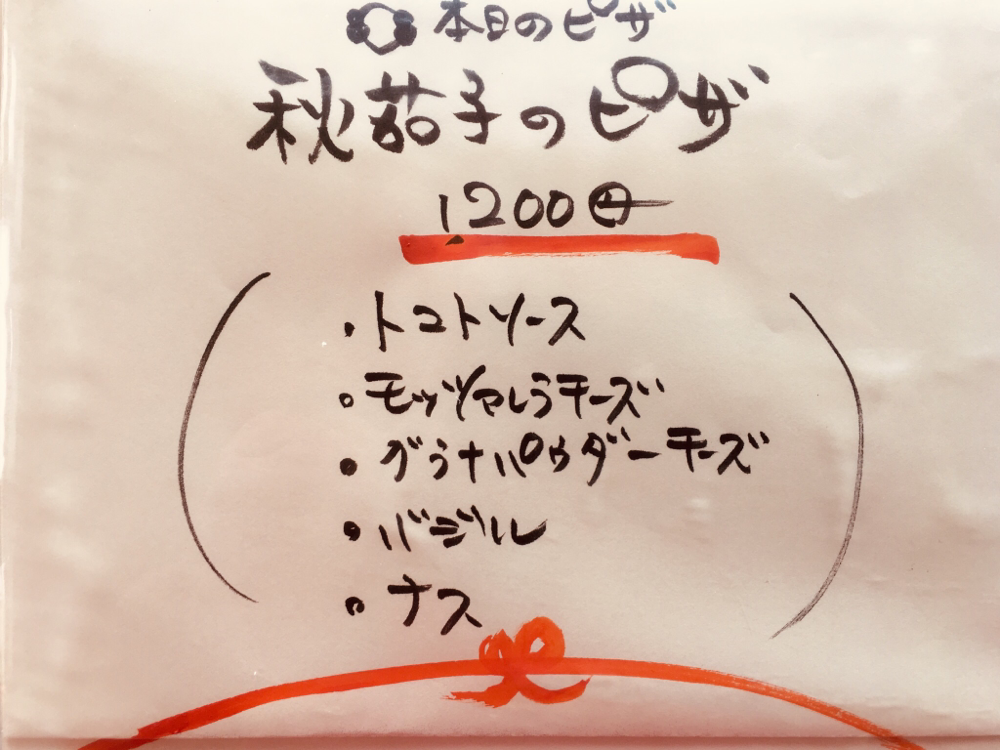 本日のピザ
秋茄子のピザ
1200円
・トマトソース
・モッツァレラチーズ
・グラナパウダーチーズ
・バジル
・ナス